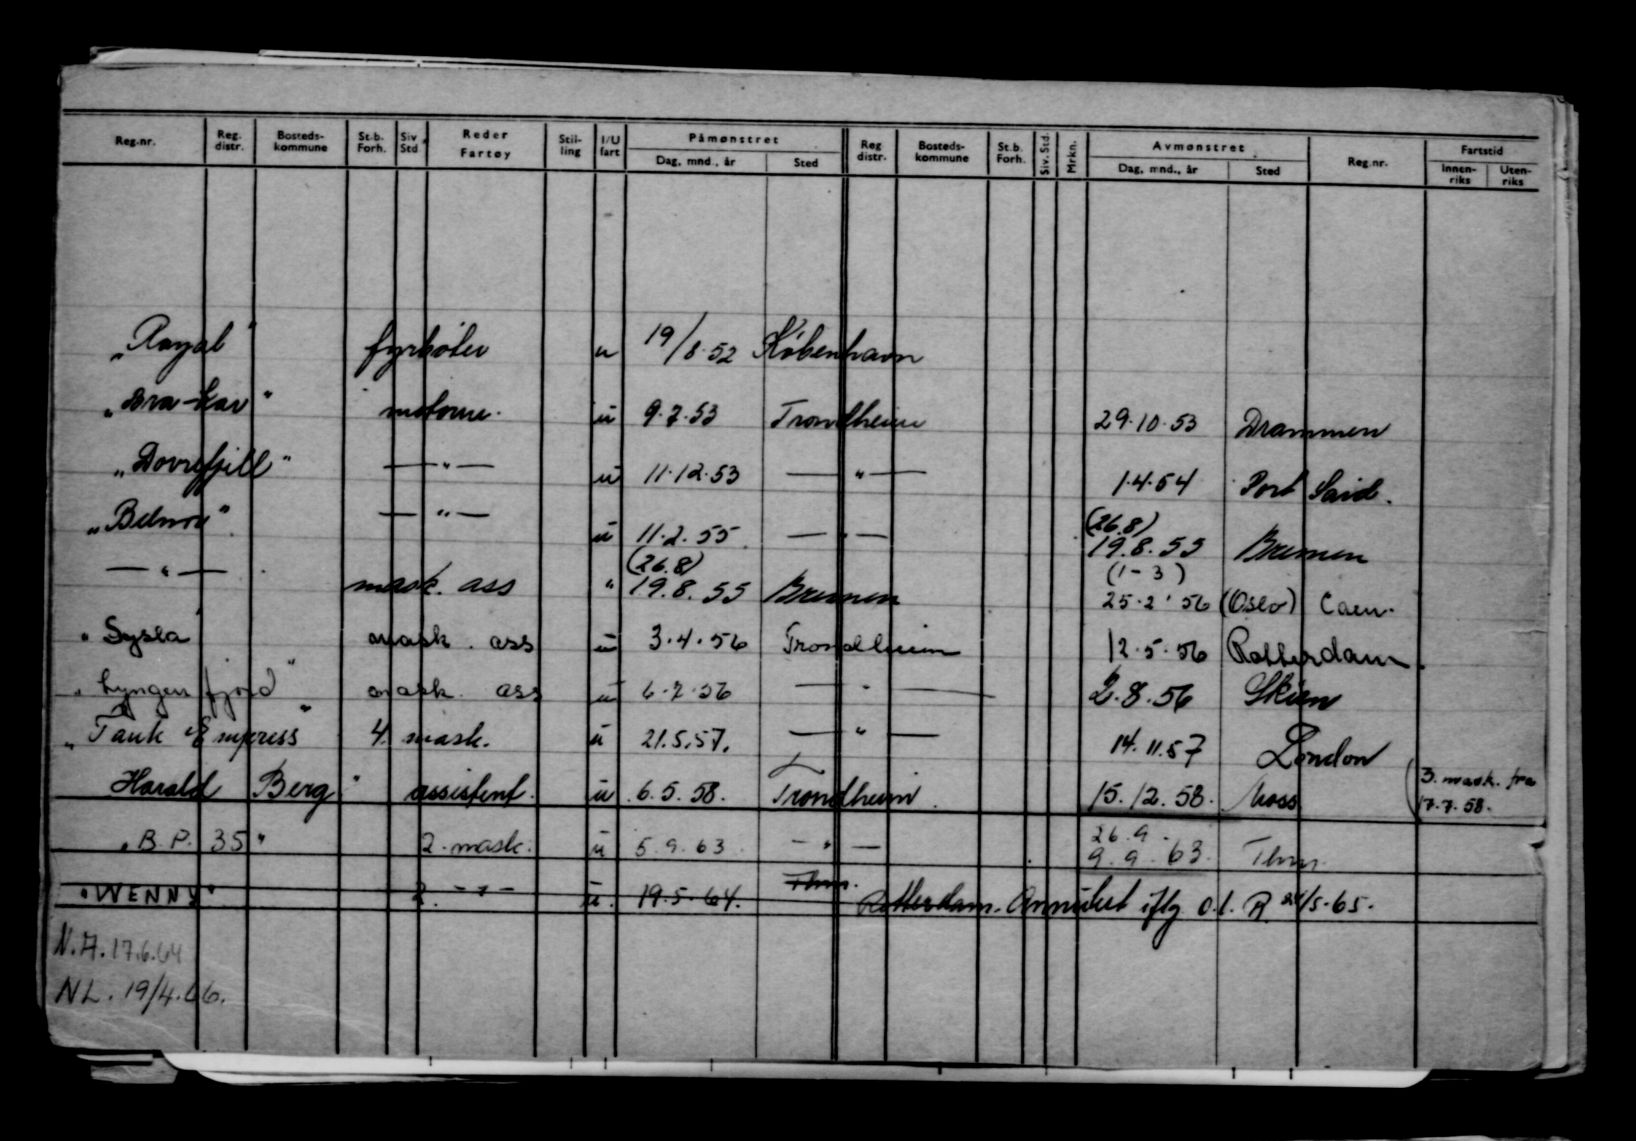 Reg.nr. Reg. distr. Bosteds-kommune St.b. Forh. Siv Std Reder Fartøy Stil-ling I/U fart Påmønstret Dag, mnd., år Sted Reg distr. Bosteds-kommune St.b. Forh. Siv. Std. Mrkn. Avmønstret Dag, mnd., år Sted Reg.nr. Fartstid Innen-riks Uten-riks
"Royal" fyrbøter u 19/8.52 København
"Bra-Kar" motorm. u 9.7.53 Trondheim 29.10.53 Drammen
"Dovrefjell" —"— u 11.12.53 —"— 1.4.54 Port Said.
"Belnor" —"— u 11.2.55 —"— (26.8) 19.8.55 Bremen
—"— mask. ass " (26.8) 19.8.55 Bremen (1-3) 25.2.56 (Oslo) Caen.
"Sysla" mask. ass u 3.4.56 Trondheim 12.5.56 Rotterdam.
"Lyngenfjord" mask. ass u 6.7.56 —"— 2.8.56 Skien
"Tank Empress" 4. mask. u 21.5.57. —"— 14.11.57 London
Harald Berg" assistent. u 6.5.58. Trondheim. 15.12.58. Moss (3. mask. fra 17.7.58.
"B.P. 35" 2. mask. u 5.9.63. —"— 26.9. 9.9.63. Thm.
"WENNY" 2. -"- u. 19.5.64. Thm. Rotterdam. Annulert iflg. o.l. R 24/5.65.
N.A. 17.6.64
NL. 19/4.66.